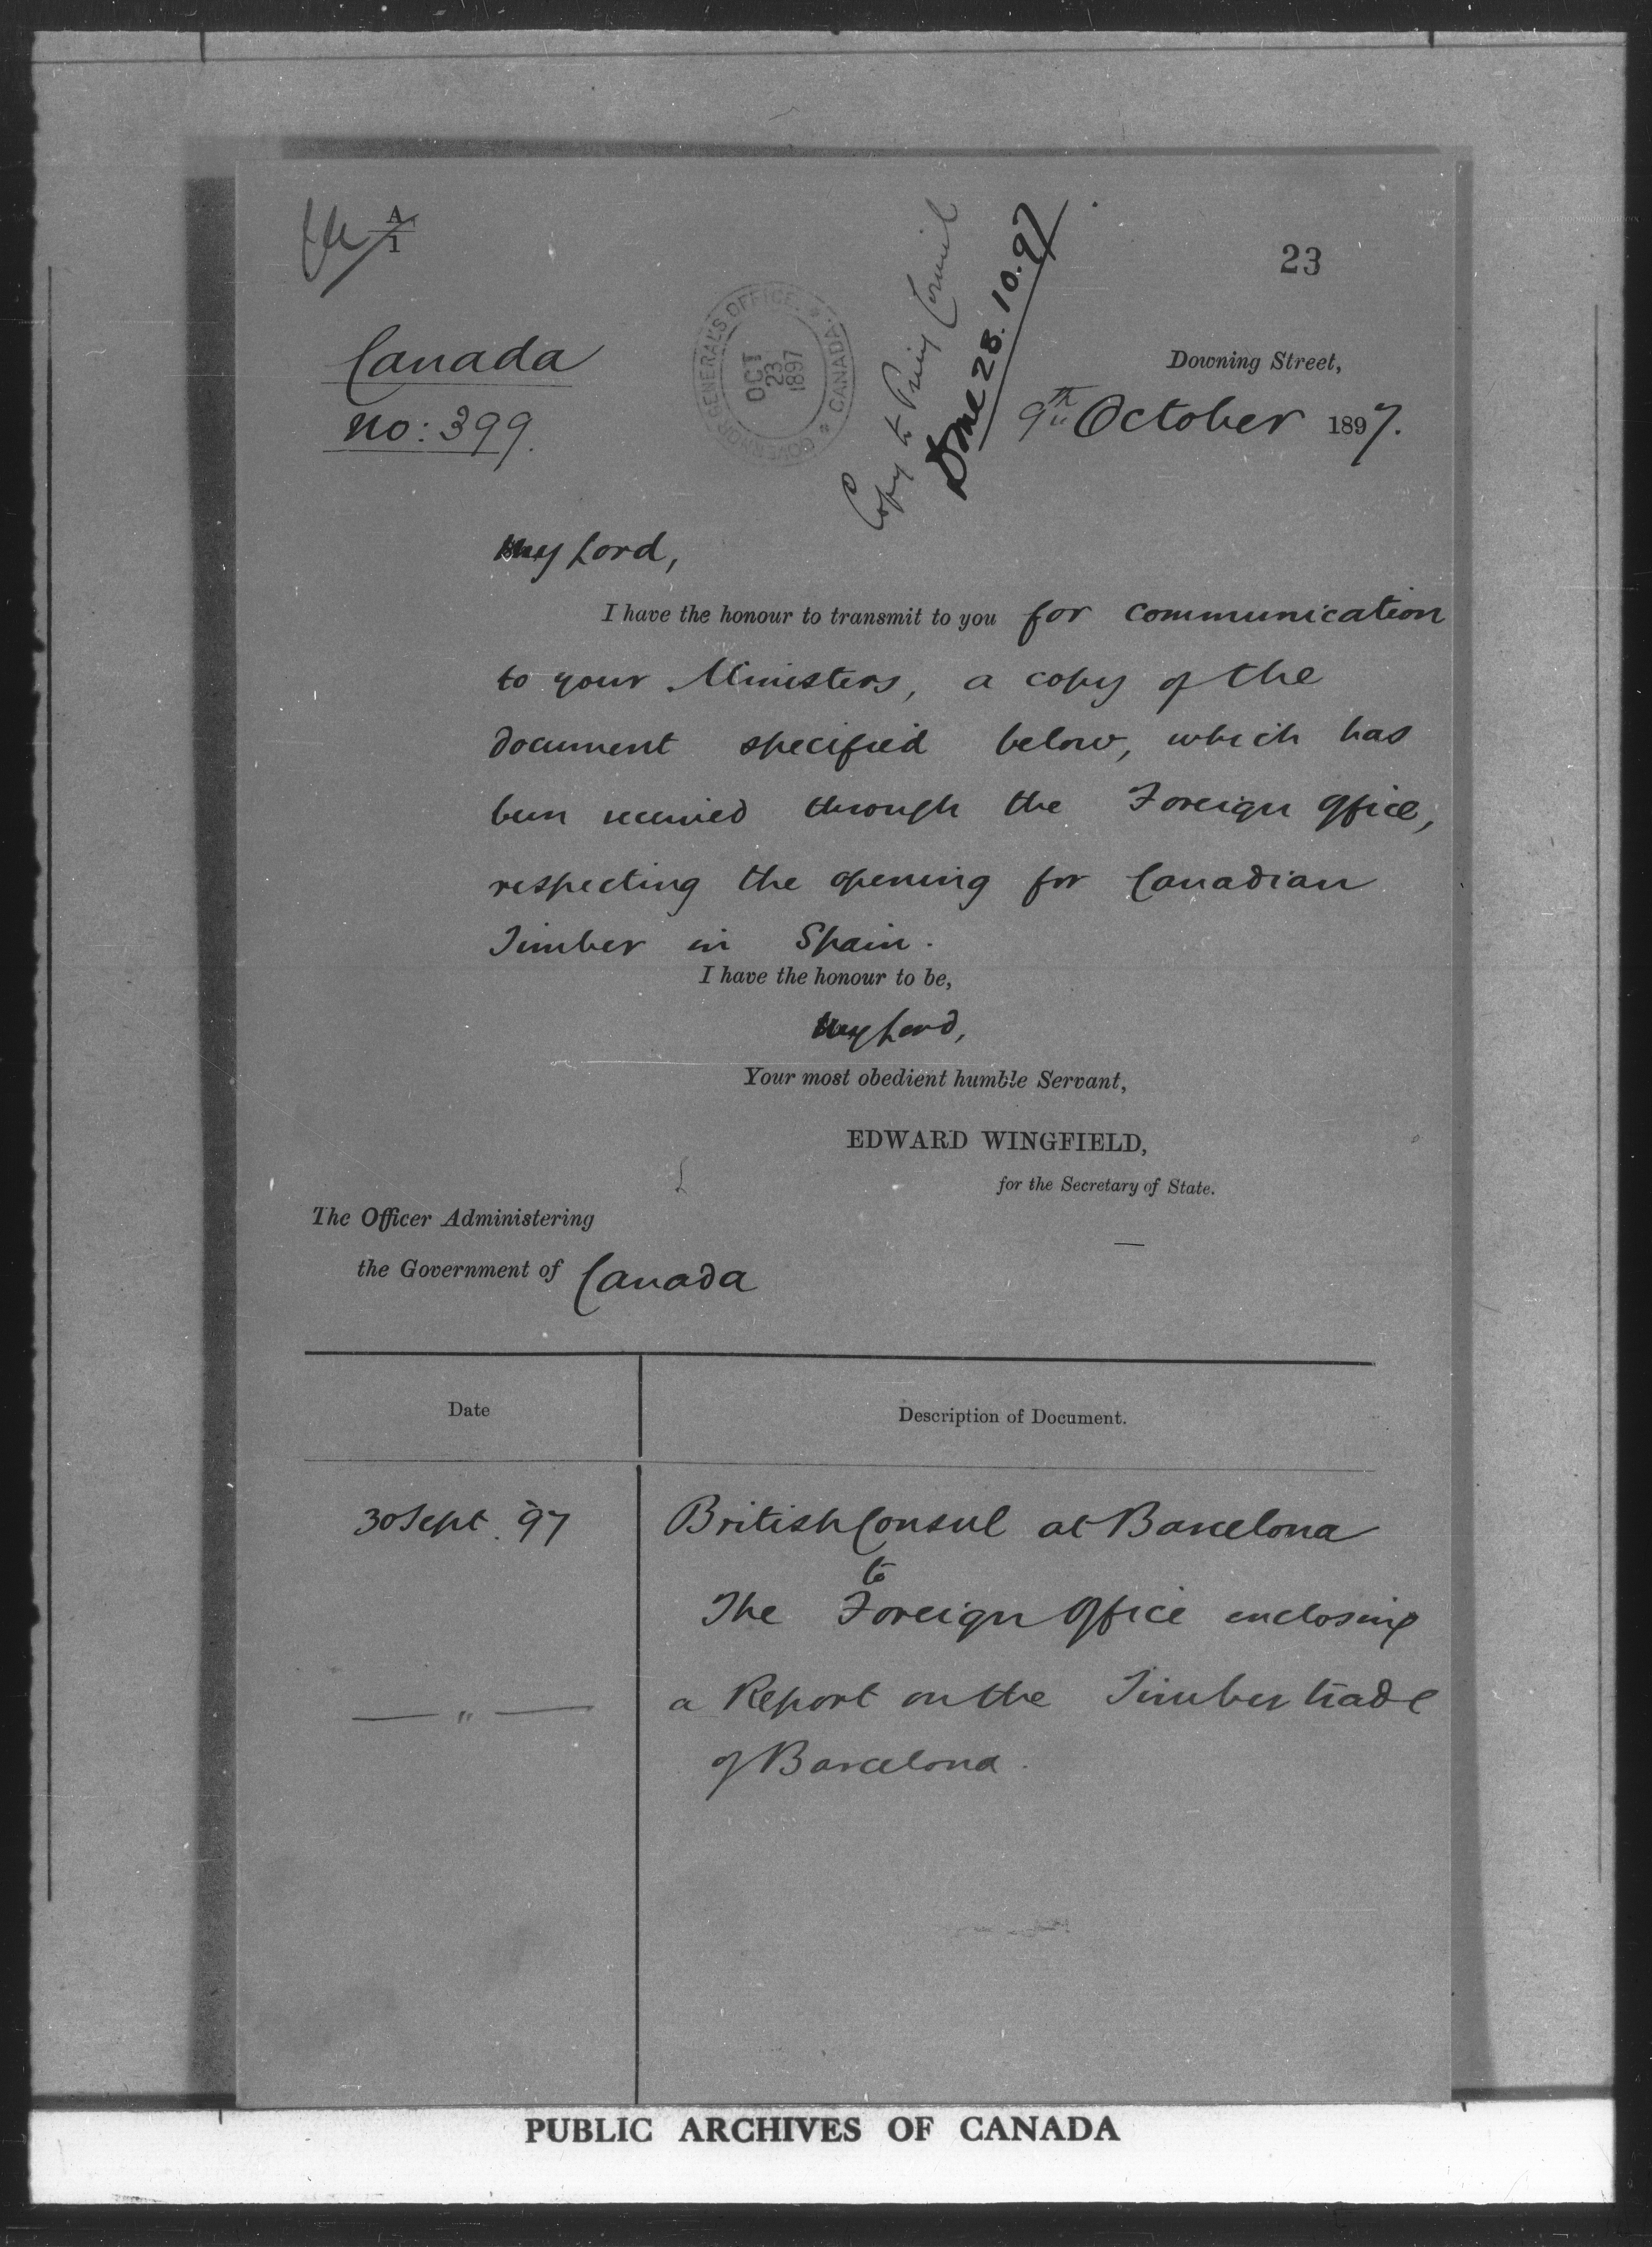 A/1
23
Canada
no: 399.
GOVERNOR GENERAL'S OFFICE. * CANADA. *
OCT
23
1897
Copy to Privy Council
Done 28.10.97
Downing Street,
9th October 1897.
My Lord,
I have the honour to transmit to you for communication
to your Ministers, a copy of the
document specified below, which has
been received through the Foreign Office,
respecting the opening for Canadian
Timber in Spain.
I have the honour to be,
My Lord,
Your most obedient humble Servant,
EDWARD WINGFIELD,
for the Secretary of State.
The Officer Administering
the Government of Canada
Date
Description of Document.
30 Sept. 97
British Consul at Barcelona
to
The Foreign Office enclosing
— " —
a Report on the Timber trade
of Barcelona.
PUBLIC ARCHIVES OF CANADA